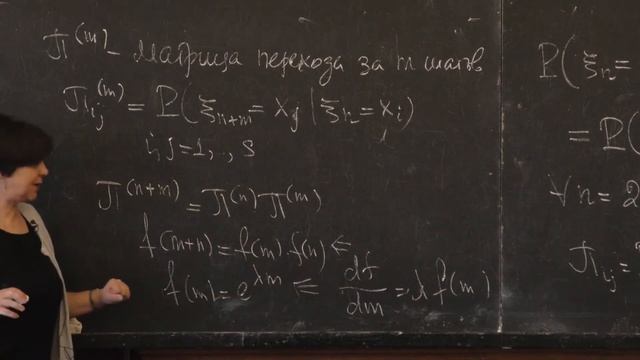 π^(m) - матрица перехода за m шагов
π_ij^(m) = P(ξ_{n+m} = x_j | ξ_n = x_i)
i, j = 1, .., s
π^(n+m) = π^(n) π^(m)
f(m+n) = f(m) · f(n) ⇐
f(m) = e^{λm} ⇐ df/dm = λ f(m)
P(ξ_n =
= P(
∀n = 2
π_ij